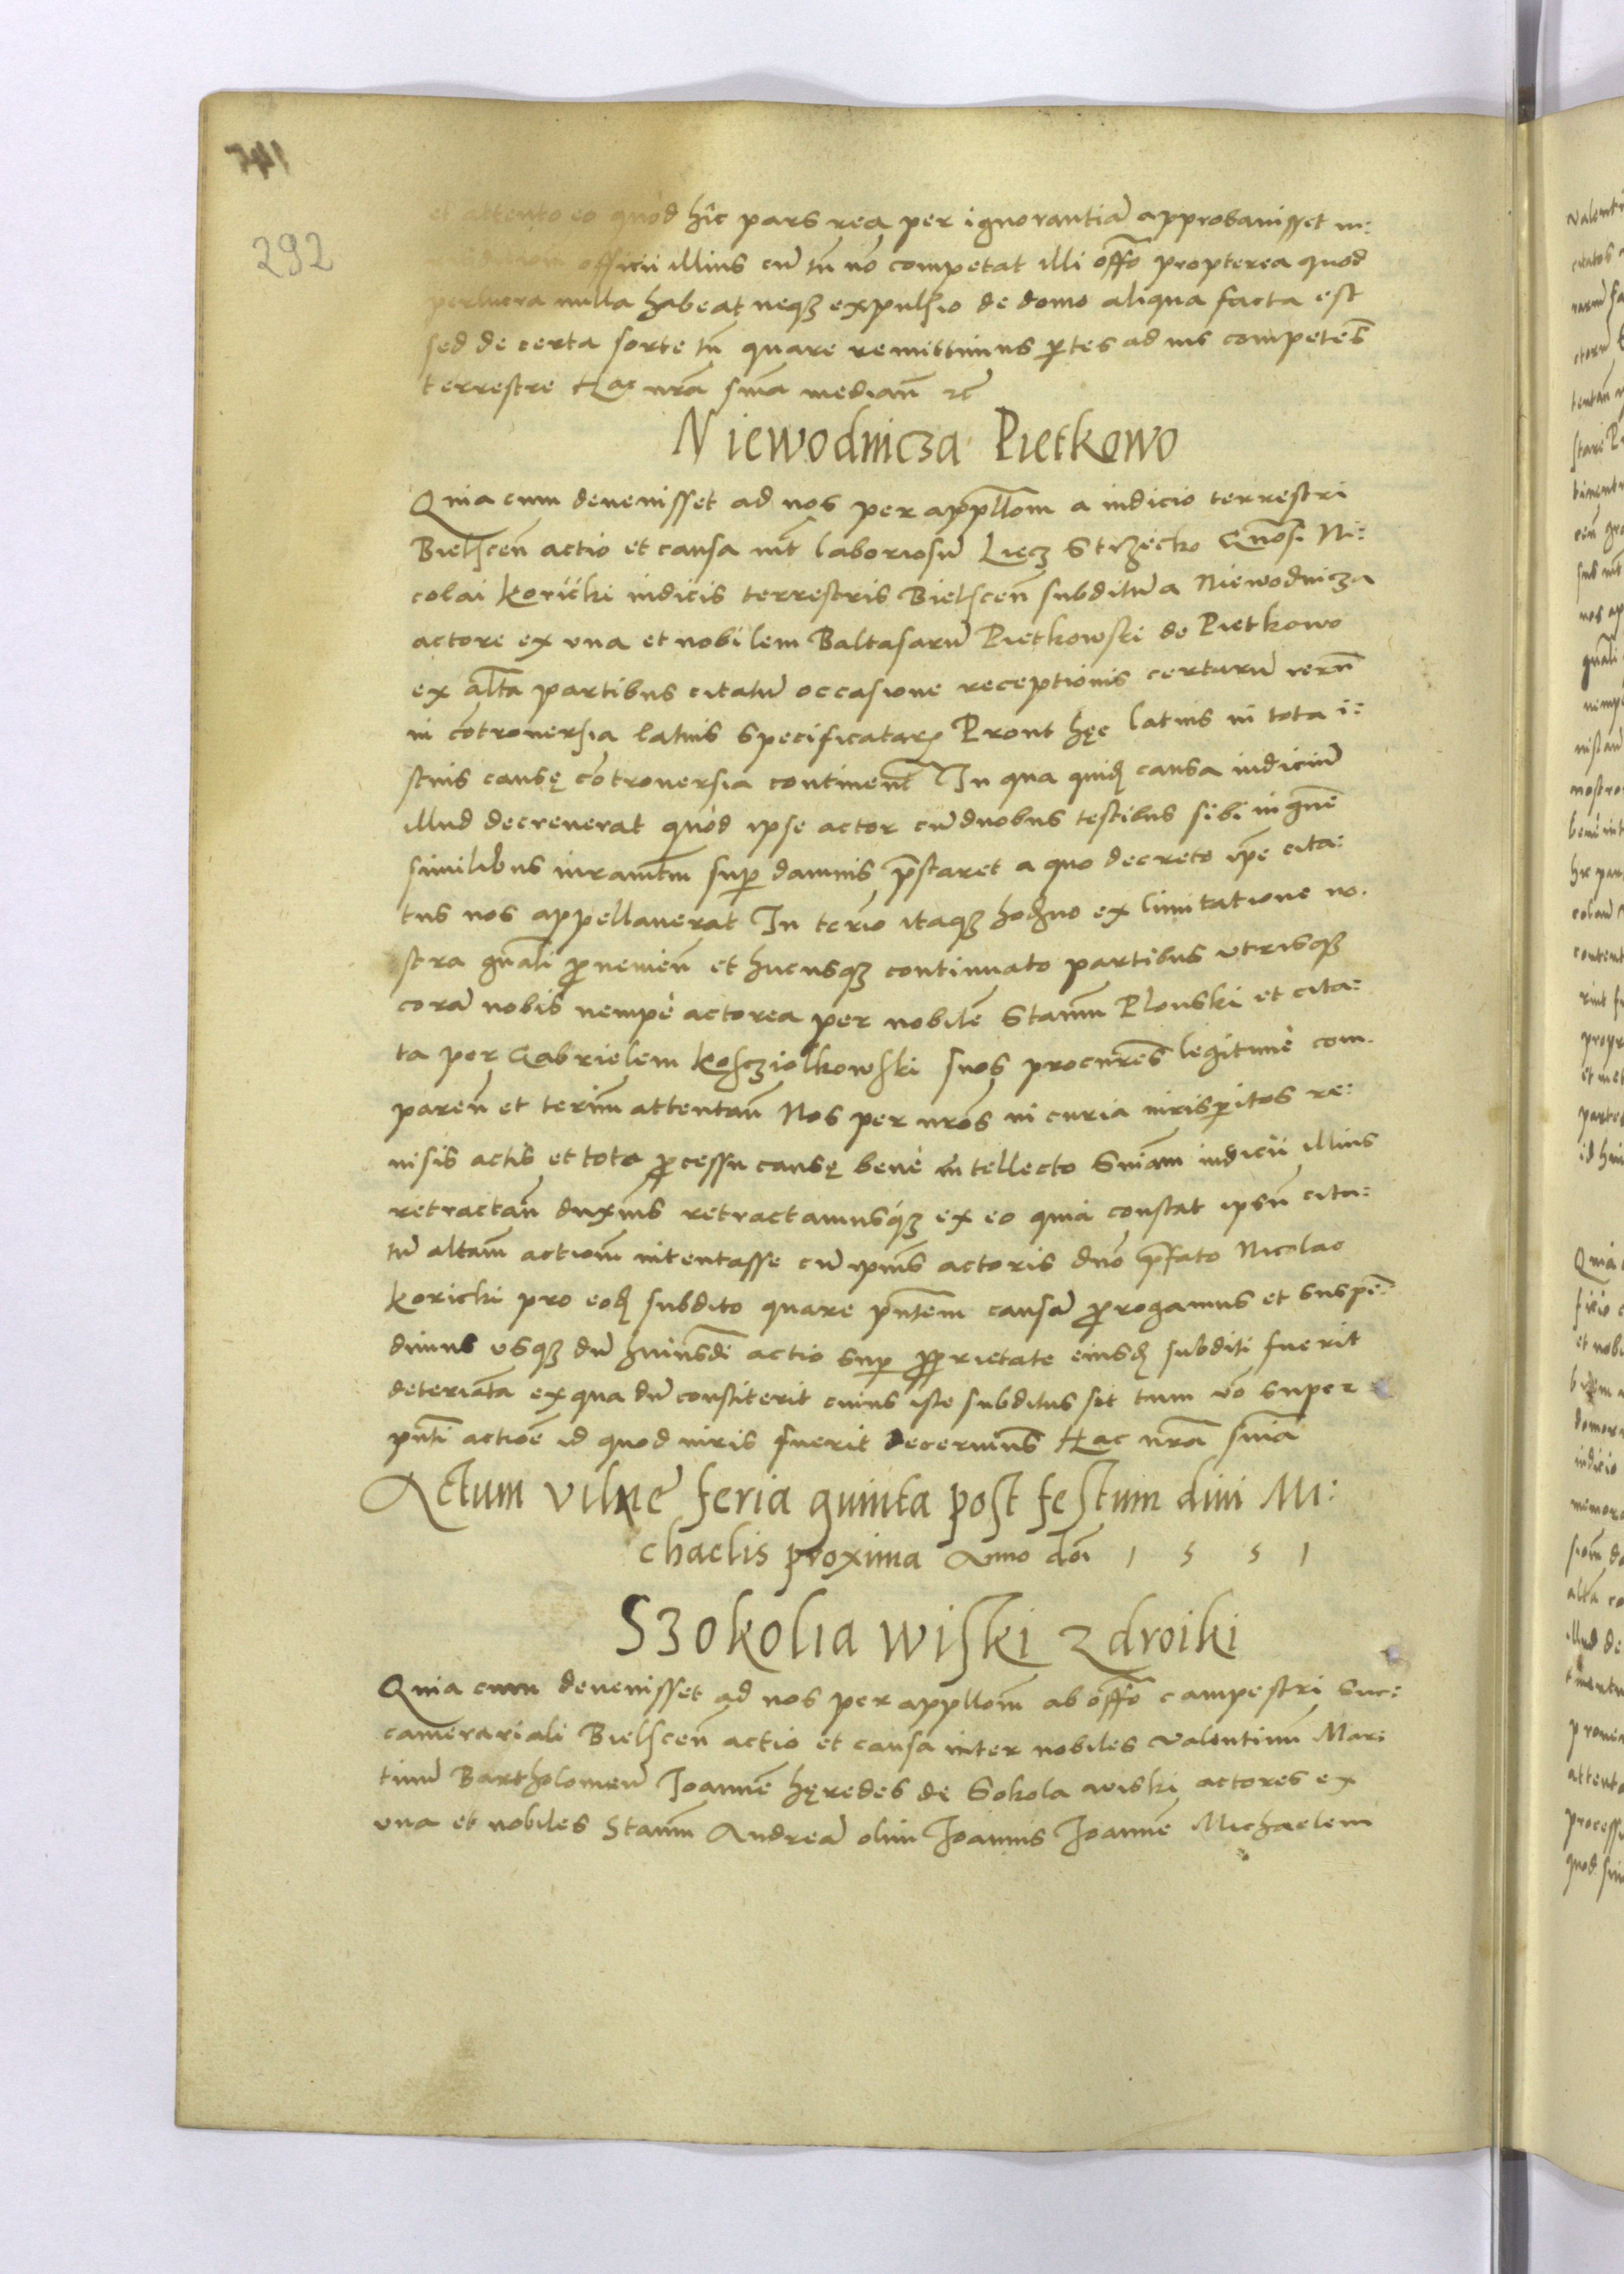 292
et attento eo quòd hîc pars rea per ignorantiã approbauisset iu:
officii illius cũ tñ nõ competat illi offõ propterea quod
perlucra nulla habeat neqz expulsio de domo aliqua facta est
sed de certa sorte tñ quare remittimus ptes ad ius competẽs
terrestre Hac nrã sniã mediañ etc
Niewodnicza Pietkowo
Quia cum deuenisset ad nos per appellõm a iudicio terrestri
Bielsceñ actio et causa int̃ laboriosũ Liecz Strzecko Gnõsi Ni:
colai Koricki iudicis terrestris Bielsceñ subditũ a Niewodnicza
actore ex vna et nobilem Baltasarũ Pietkowski de Pietkowo
ex altã partibus citatũ occasione receptionis certarũ rerũ
in cõtrouersia latius specificatarꝝ Prout hęc latius in tota i:
stius causę cõtrouersia continenť In qua quidẽ causa iudiciũ
illud decreuerat quòd ipse actor cũ duobus testibus sibi in gñe
similibus iuramẽtm sup damnis p̃staret a quo decreto ip̃e cita:
tus nos appellauerat In terĩo itaqz hodierno ex limitatione no.
stra gñali proueniẽn et hucusqz continuato partibus vtrisqz
corã nobis nempè actorea per nobilẽ Stanm̃ Plonski et cita:
ta per Gabrielem Kosziolkowski suos procurẽs legitimè com.
pareñ et term̃ attentañ Nos per nrõs in curia iurisperitos re:
uisis actis et toto processu causę benè intellecto Sniãm iudicii illius
retractañ duximus retractamusqz ex eo quia constat ipsũ cita:
tũ altam̃ actionẽ intentasse cũ ipsius actoris dñõ p̃fato Nicolao
Koricki pro eodẽ subdito quare pñtem causã prorogamus et suspẽ:
dimus vsqz dũ huiusm̃di actio sup proprietate eiusdẽ subditi fuerit
determiata ex qua dũ constiterit cuius iste subditus sit tum vẽo super
pñti actiõe id quod iuris fuerit decernemus Hac nrã sniã
Actum vilnę feria quinta post festum diui Mi:
chaelis proxima Anno doi 1 5 5 1
Szokolia wiski zdroiki
Quia cum deuenisset ad nos per appellõm ab offõ campestri suc:
camerariali Bielsceñ actio et causa inter nobiles Valentinũ Mar:
tinũ Bartholomeũ Joannẽ hęredes de Sokola wiski actores ex
vna et nobiles Stanm̃ Andreã olim Joannis Joannẽ Michaelem